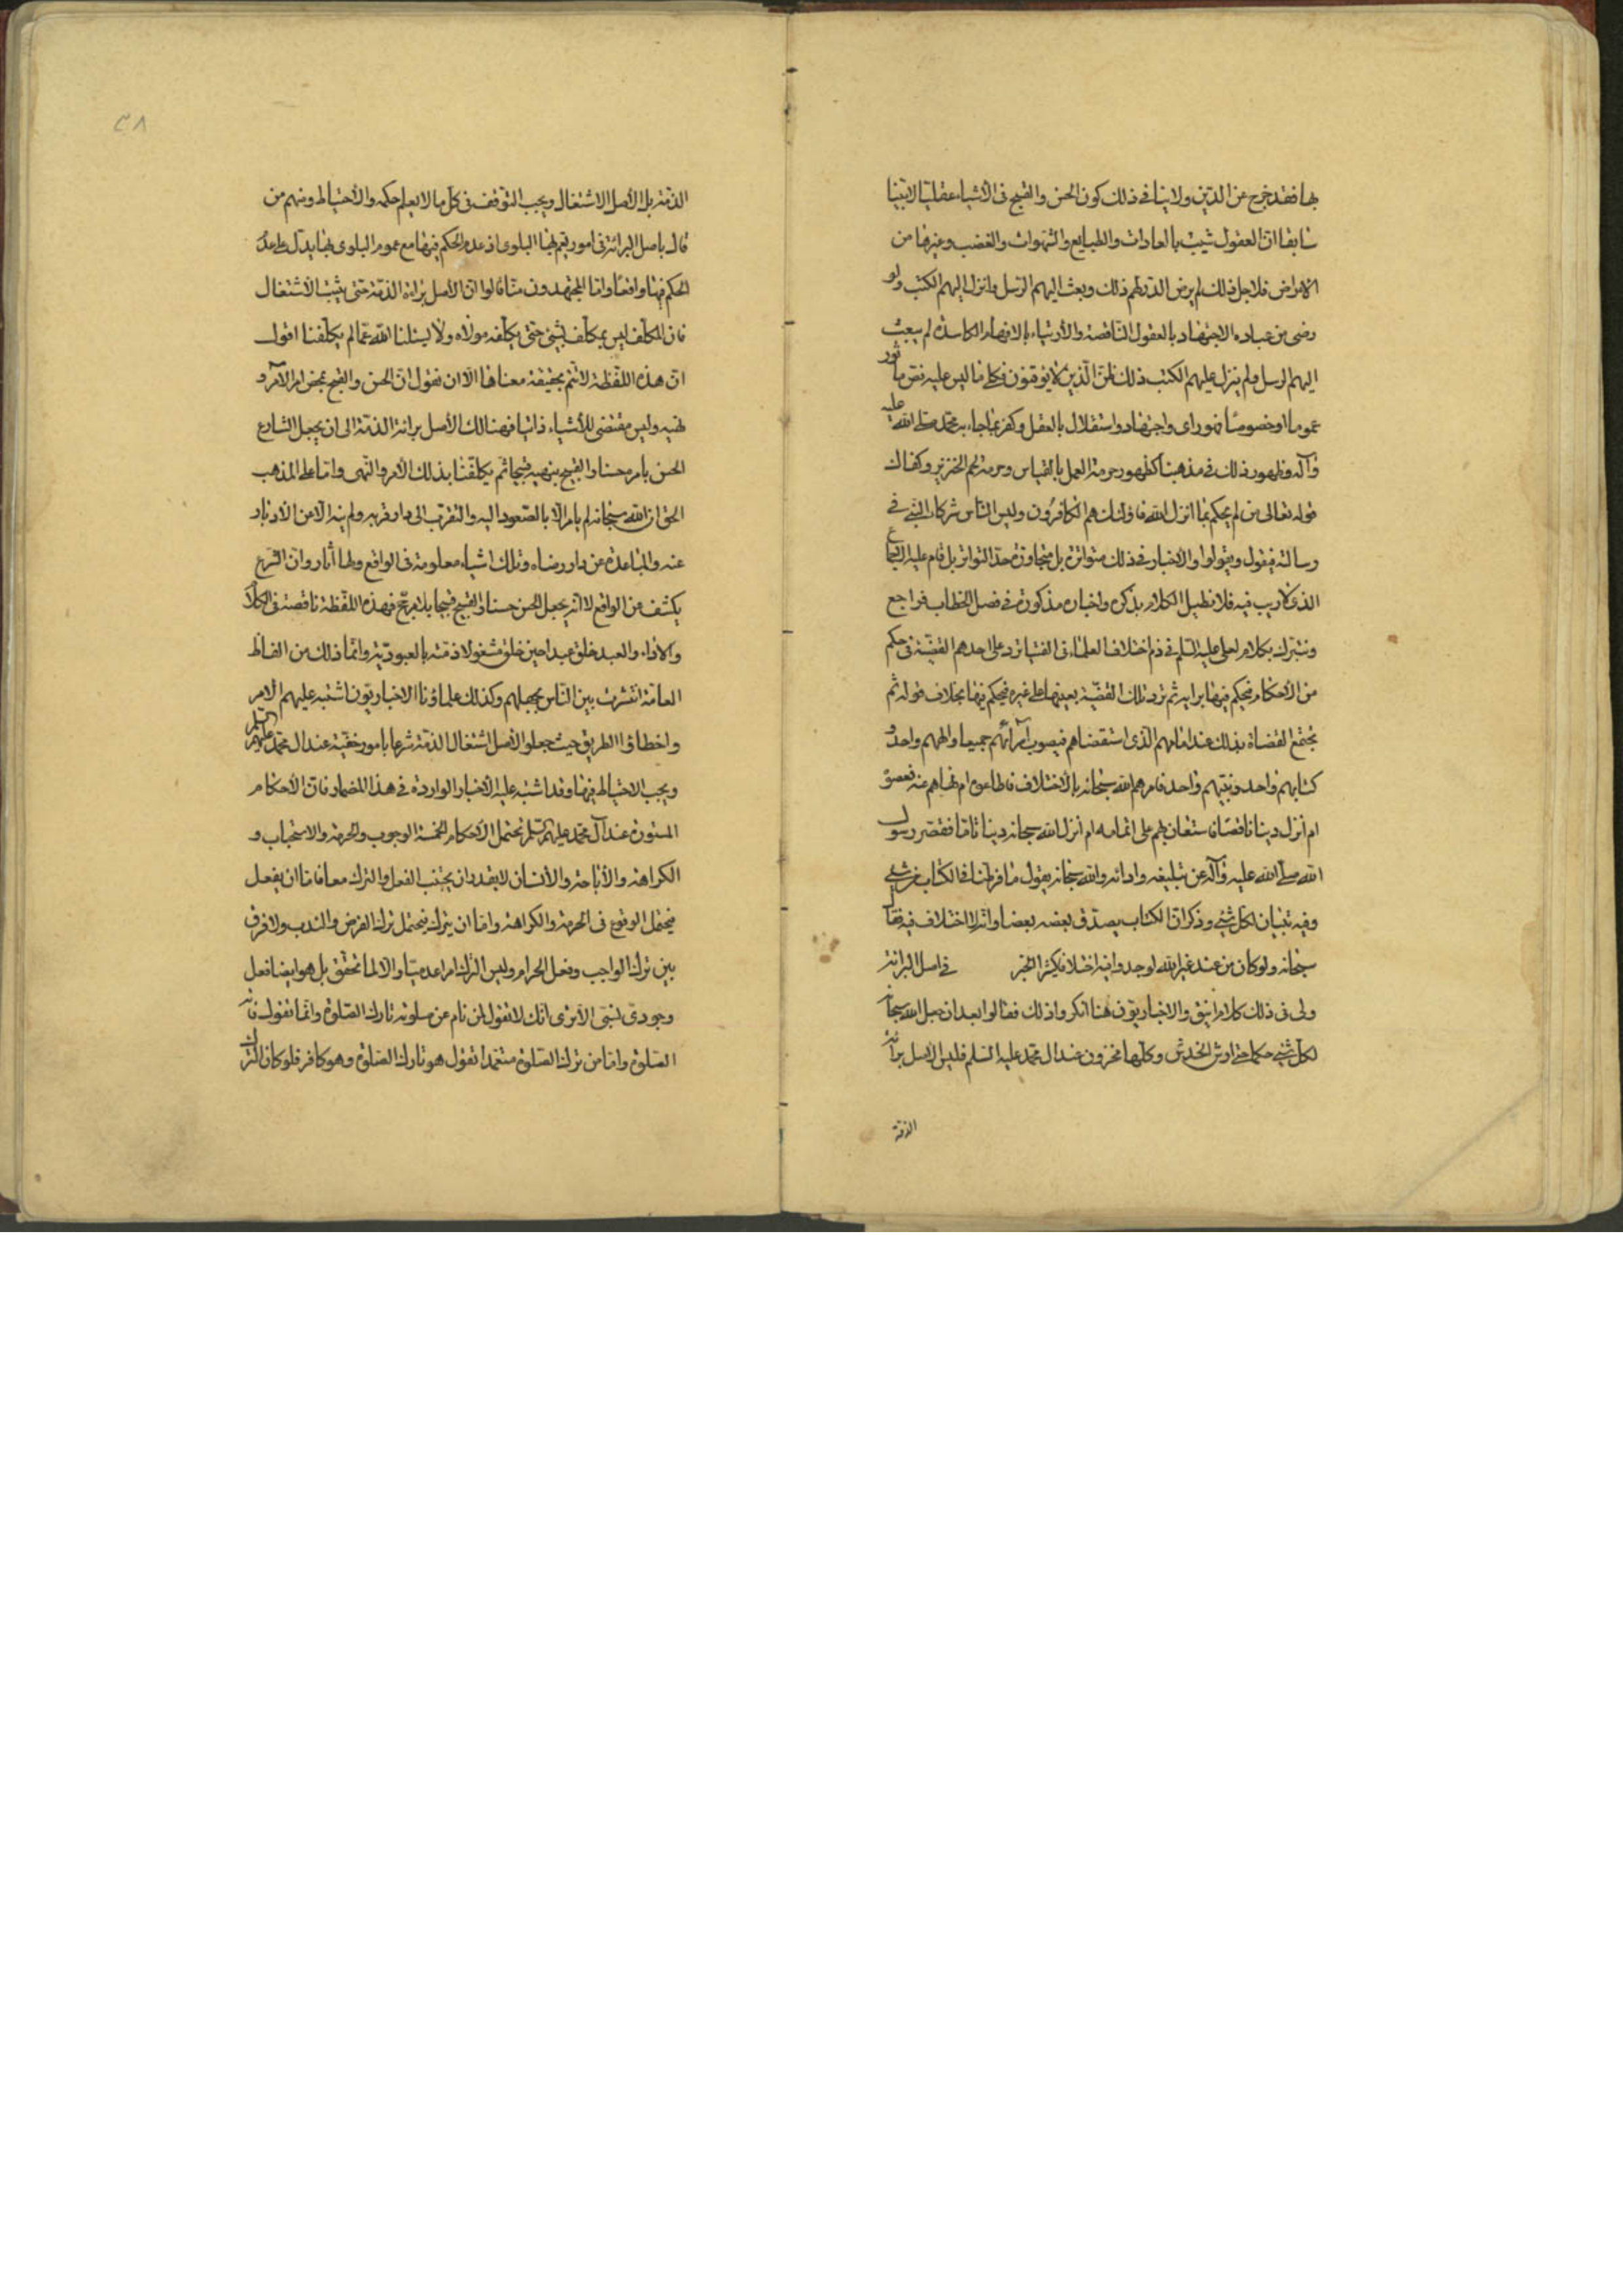 بها فقد خرج عن الدين ولا ينافي ذلك كون الحسن والقبح في الأشياء عقليا لا تبينا
سابقا ان العقول شيبت بالعادات والطبايع والشهوات والغضب وغيرها من
الامراض فلاجل ذلك لم يرض الله لهم ذلك وبعث اليهم الرسل وانزل اليهم الكتب ولو
رضي من عباده الاجتهاد بالعقول الناقصة والأرتياء بالافهام الكاسدة لم يبعث
اليهم الرسل ولم ينزل عليهم الكتب ذلك ظن الذين لا يوقنون فكل ما ليس عليه نص مأثور
عموما او خصوصا فهو راى واجتهاد واستقلال بالعقل وكفر بما جاء به محمد صلى الله عليه
وآله وظهور ذلك في مذهبنا كظهور حرمة العمل بالقياس وحرمة لحم الخنزير وكفاك
قوله تعالى من لم يحكم بما انزل الله فاولئك هم الكافرون وليس الناس شركاء النبي في
رسالته فيقول ويقولوا والاخبار في ذلك متواترة بل متجاوزة حد التواتر بل قام عليه الاجماع
الذي لا ريب فيه فلا نطيل الكلام بذكره واخباره مذكورة في فصل الخطاب فراجع
ونتبرك بكلام لعلي عليه السلم في ذم اختلاف العلماء في الفتيا ترد على احدهم القضية في حكم
من الأحكام فيحكم فيها برايه ثم ترد تلك القضية بعينها على غيره فيحكم فيها بخلاف قوله ثم
تجتمع القضاة بذلك عند امامهم الذي استقضاهم فيصوب آرائهم جميعا والههم واحد و
كتابهم واحد ونبيهم واحد فامرهم الله سبحانه بالاختلاف فاطاعوه ام نهاهم عنه فعصوه
ام أنزل دينا ناقصا فاستعان بهم على اتمامه ام أنزل الله سبحانه دينا تاما فقصر رسول
الله صلى الله عليه وآله عن تبليغه وادائه والله سبحانه يقول ما فرطنا في الكتاب من شئ
وفيه تبيان لكل شئ وذكر ان الكتاب يصدق بعضه بعضا وانه لا اختلاف فيه فقال
سبحانه ولو كان من عند غير الله لوجدوا فيه اختلافا كثيرا الخبر في اصل البرائة
ولى في ذلك كلام انيق والاخباريون هنا انكروا ذلك فقالوا بعد ان جعل الله سبحانه
لكل شئ حكما حتى ارش الخدش وكلها مخزون عند ال محمد عليه السلم فليس الاصل برائة
الذمة
٣٨
الذمة بل الأصل الاشتغال ويجب التوقف في كل ما لا يعلم حكمه والأحتياط ومنهم من
قال باصل البرائة في امور يعم بها البلوى اذ عدم الحكم فيها مع عموم البلوى بها يدل على عدم
الحكم فيها واقعا واما المجتهدون منا قالوا ان الأصل برائة الذمة حتى يثبت الاشتغال
فان المكلف ليس بمكلف بشئ حتى يكلفه مولاه ولا يسئلنا الله عما لم يكلفنا اقول
ان هذه اللفظة لا تتم بحقيقة معناها الا ان نقول ان الحسن والقبح بمحض امر الآمر و
نهيه وليس مقتضى للأشياء ذاتيا فهنالك الأصل برائة الذمة الى ان يجعل الشارع
الحسن بامره حسنا والقبيح بنهيه قبيحا ثم يكلفنا بذلك الأمر والنهى واما على المذهب
الحق ان الله سبحانه لم يامر الا بالصعود اليه والتقرب الى دار قربه ولم ينه الا من الأدبار
عنه والمباعدة عن دار رضاه وتلك اشياء معلومة في الواقع ولها آثار وان الشرع
يكشف عن الواقع لا انه يجعل الحسن حسنا والقبيح قبيحا بلا مرجح فهذه اللفظة ناقصة في الكلام
والاداء والعبد خلق عبدا حين خلق مشغولا ذمته بالعبودية وانما ذلك من الفاظ
العامة انتشرت بين الناس بجهلهم وكذلك علماؤنا الاخباريون اشتبه عليهم الامر
واخطاؤا الطريق حيث جعلوا الأصل اشتغال الذمة شرعا بامور خفية عند ال محمد عليهم السلم
ويجب الاحتياط فيها وقد اشتبه عليه الأخبار الواردة في هذا المضمار فان الأحكام
المستورة عند آل محمد عليهم السلم تحتمل الأحكام الخمسة الوجوب والحرمة والاستحباب و
الكراهة والأباحة والأنسان لا يقدر ان يجتنب الفعل والترك معا فاما ان يفعل
فيحتمل الوقوع في الحرمة والكراهة واما ان يترك فيحتمل ترك الفرض والندب ولا فرق
بين ترك الواجب وفعل الحرام وليس الترك امرا عدميا والا لما تحقق بل هو ايضا فعل
وجودي نسبي الا ترى انك لا تقول لمن نام عن صلوته تارك الصلوة وانما تقول فاته
الصلوة واما من ترك الصلوة متعمدا تقول هو تارك الصلوة وهو كافر فلو كان الترك